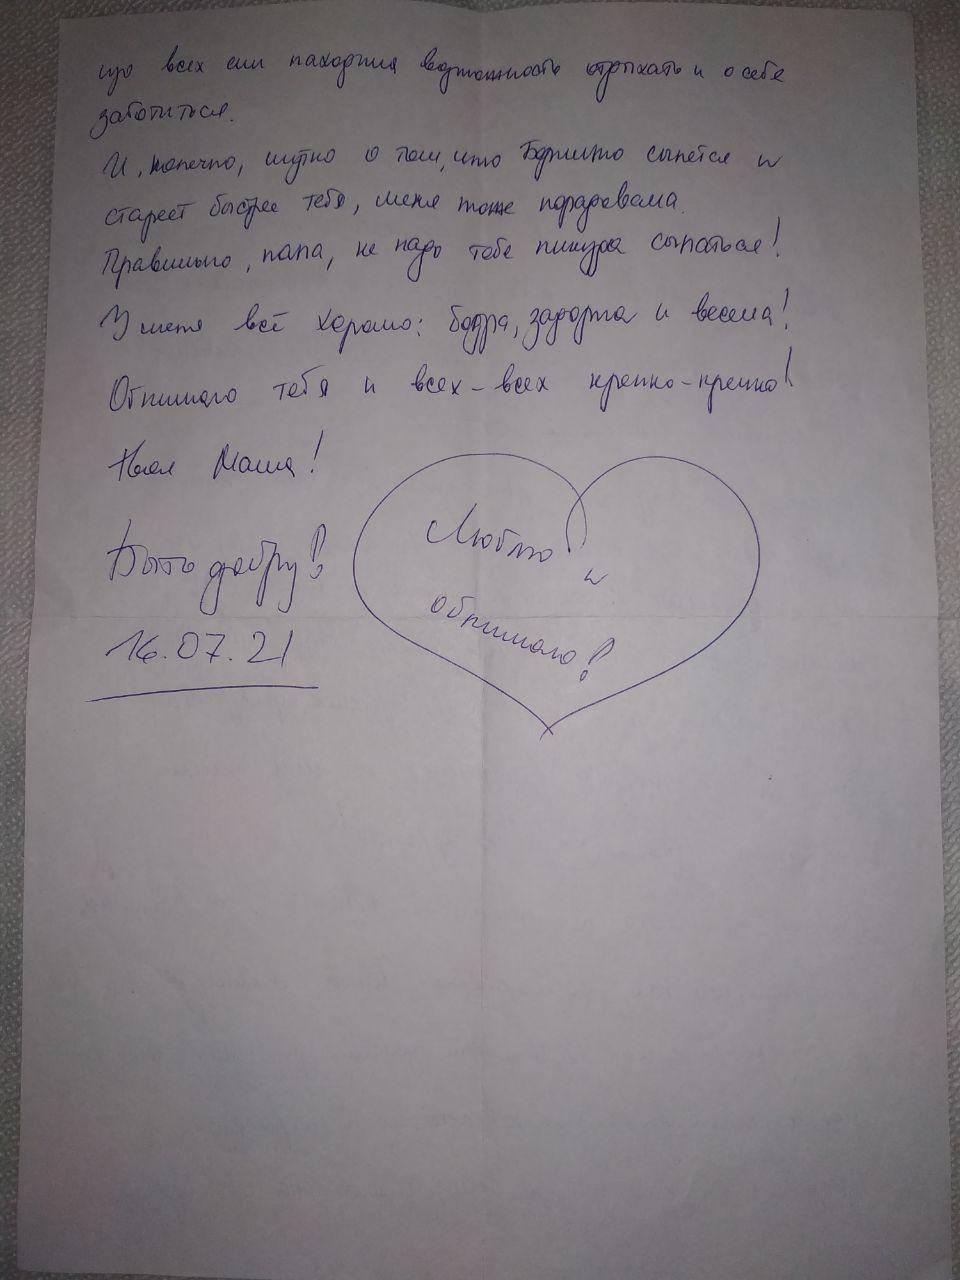 изо всех сил находила возможность отдыхать и о себе
заботиться.
И, конечно, шутка о том, что сыпется и
стареет быстрее тебя, меня тоже порадовала.
Правильно, папа, не надо тебе никуда сыпаться!
У меня всё хорошо: бодра, задорна и весела!
Обнимаю тебя и всех-всех крепко-крепко!
Твоя Маша!
Быть добру!
16.07.21
Люблю
и
обнимаю!